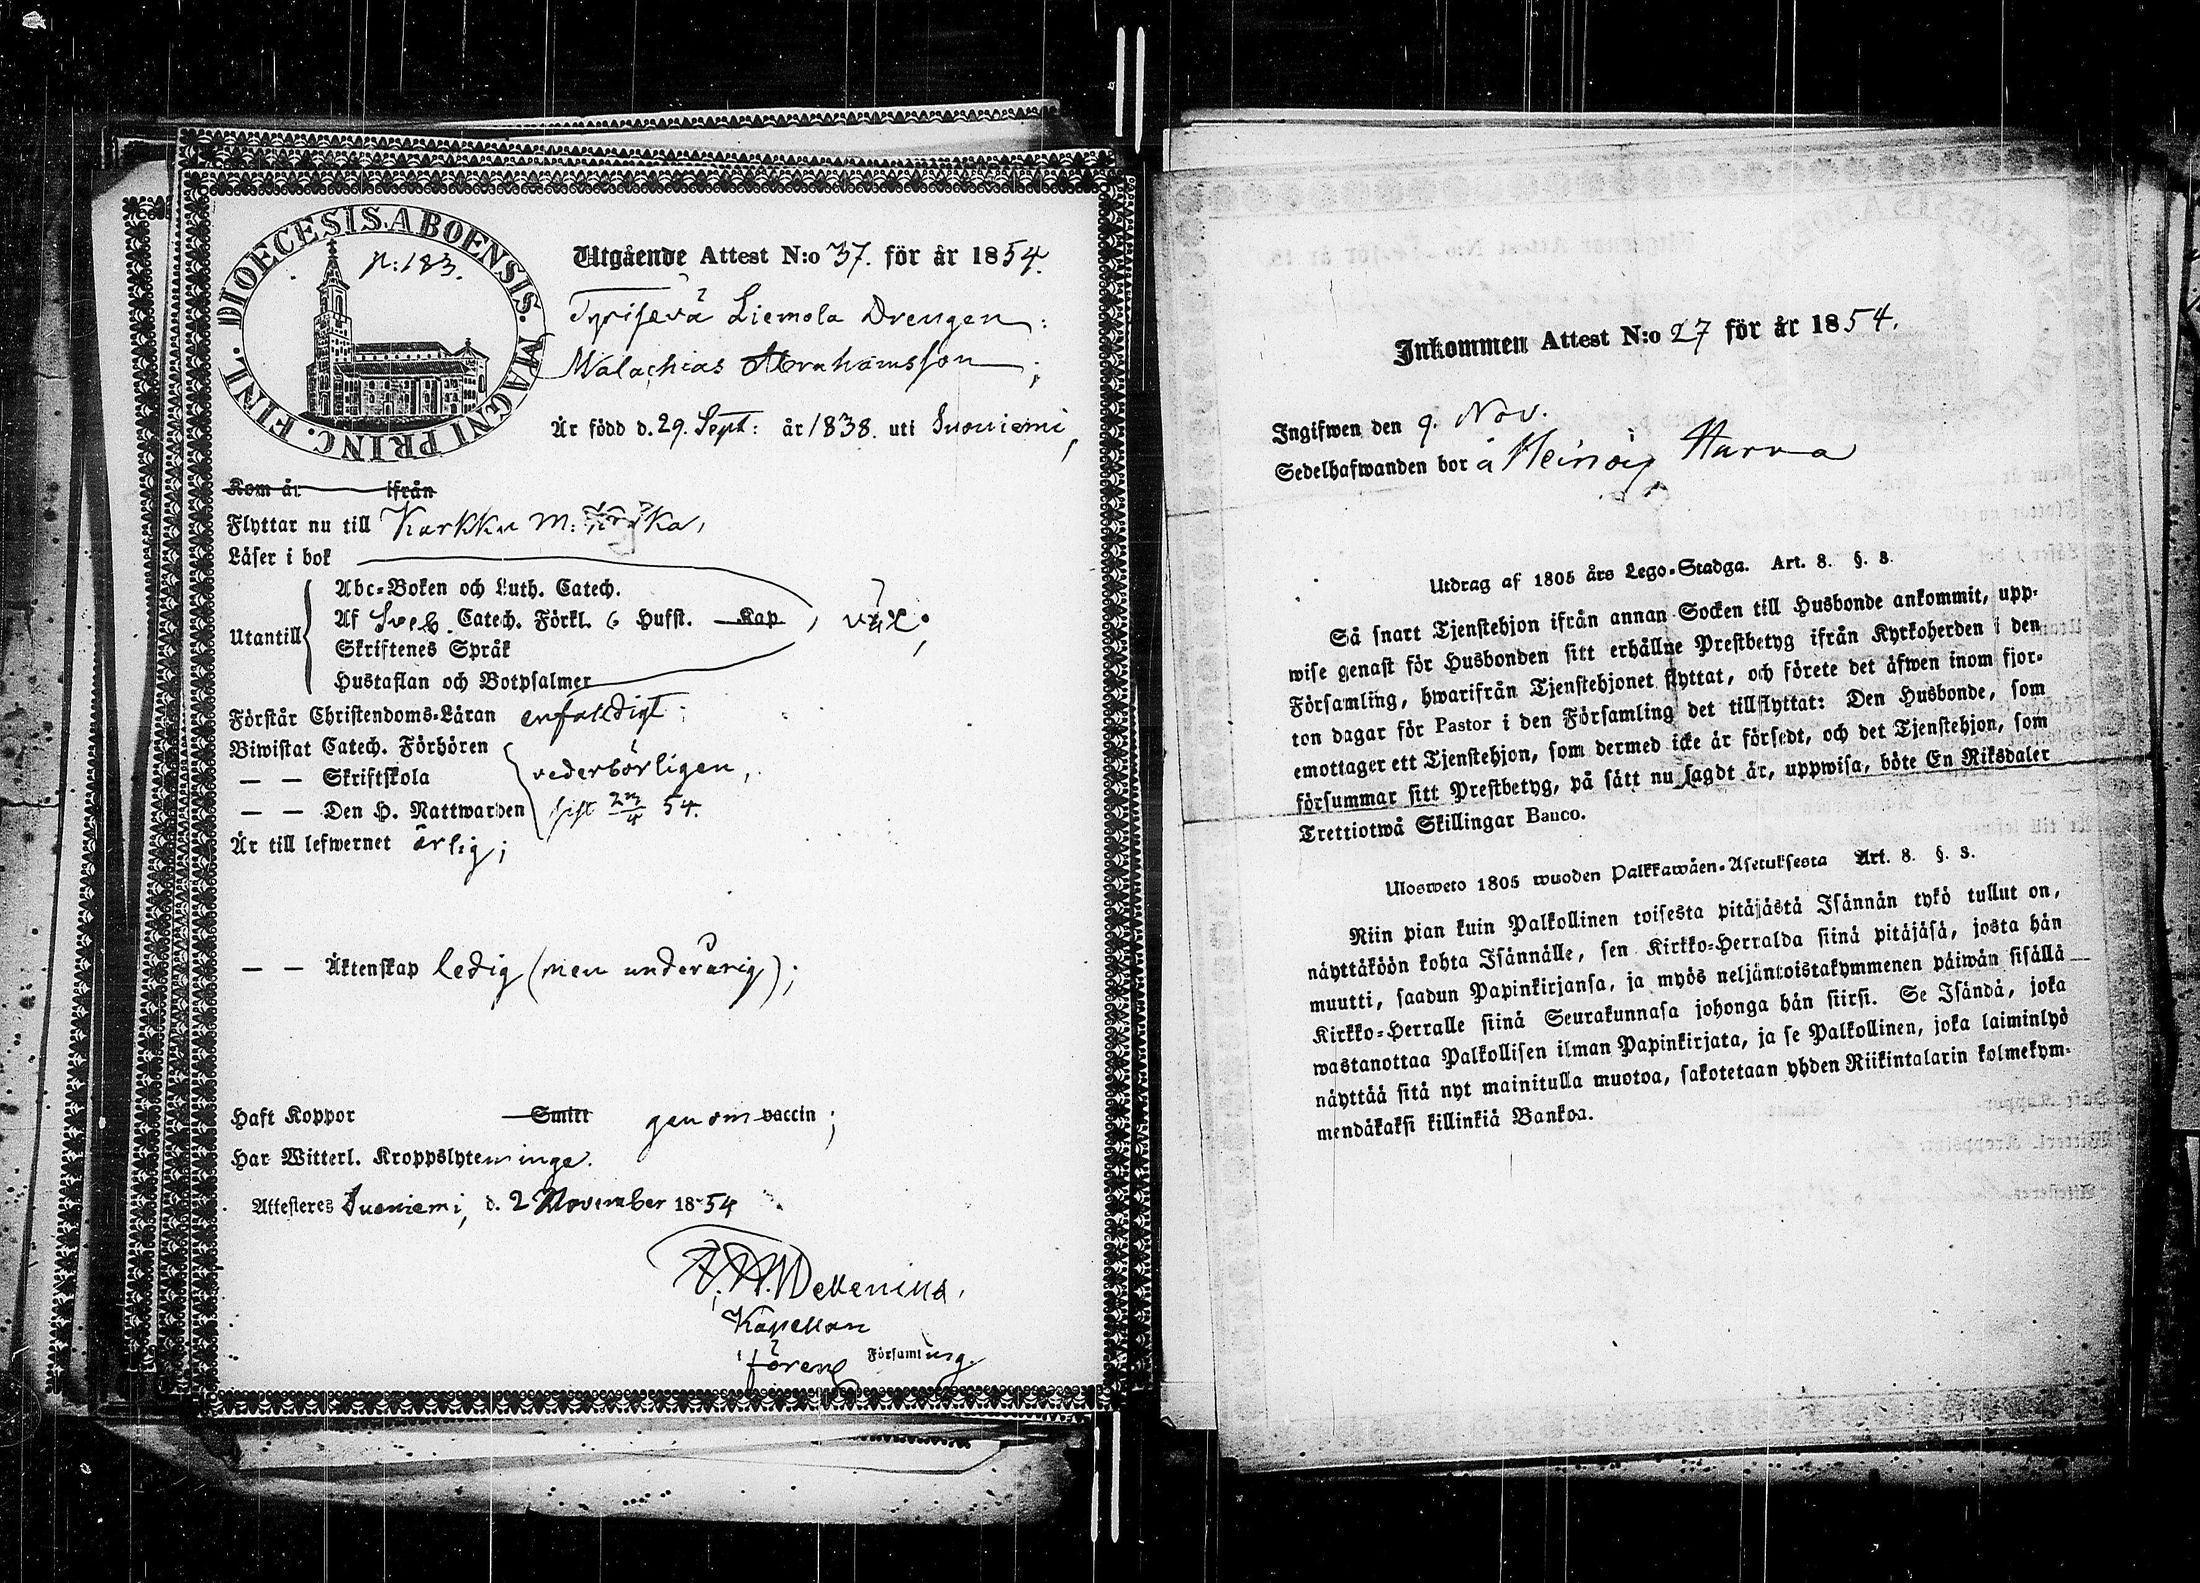 DIOECESIS. ABOENSIS. MAGNI PRINC. FINL.
p: 183.
Utgående Attest N:o 37. för år 1854.
Tyrisevä Liemola Drengen:
Malachias Abrahamsson;
Är född d. 29. Sept: år 1838. uti Suoniemi,
Kom år ifrån
Flyttar nu till Karkku M:
Läser i bok
Utantill
Abc-Boken och Luth. Catech.
Af Sveb. Catech. Förkl. 6 Hufst. Kap
Skriftenes Språk
Hustaflan och Botpsalmer
Förstår Christendoms-Läran enfaldigt;
Biwistat Catech. Förhören
— — Skriftskola
— — Den H. Nattwarden
vederbörligen,
sist 54.
Är till lefwernet ärlig;
— — Äktenskap ledig (men underårig);
Haft Koppor Smitt genom vaccin;
Har Witterl. Kroppslyten inga.
Attesteres Suoniemi, d. 2 November 1854
Kapellan
i Församling.
Inkommen Attest N:o 27 för år 1854.
Ingifwen den 9. Nov.
Sedelhafwanden bor å Heinois Harva
Utdrag af 1805 års Lego-Stadga. Art. 8. §. 3.
Så snart Tjenstehjon ifrån annan Socken till Husbonde ankommit, upp-
wise genast för Husbonden sitt erhållne Prestbetyg ifrån Kyrkoherden i den
Församling, hwarifrån Tjenstehjonet flyttat, och förete det äfwen inom fjor-
ton dagar för Pastor i den Församling det tillflyttat: Den Husbonde, som
emottager ett Tjenstehjon, som dermed icke är försedt, och det Tjenstehjon, som
försummar sitt Prestbetyg, på sätt nu sagdt är, uppwisa, böte En Riksdaler
Trettiotwå Skillingar Banco.
Ulosweto 1805 wuoden Palkkawäen-Asetuksesta Art. 8. §. 3.
Niin pian kuin Palkollinen toisesta pitäjästä Isännän tykö tullut on,
näyttäköön kohta Isännälle, sen Kirkko-Herralda siinä pitäjäsä, josta hän
muutti, saadun Papinkirjansa, ja myös neljäntoistakymmenen päiwän sisällä
Kirkko-Herralle siinä Seurakunnasa johonga hän siirsi. Se Isändä, joka
wastanottaa Palkollisen ilman Papinkirjata, ja se Palkollinen, joka laiminlyö
näyttää sitä nyt mainitulla muotoa, sakotetaan yhden Riikintalarin kolmekym-
mendäkaksi killinkiä Bankoa.